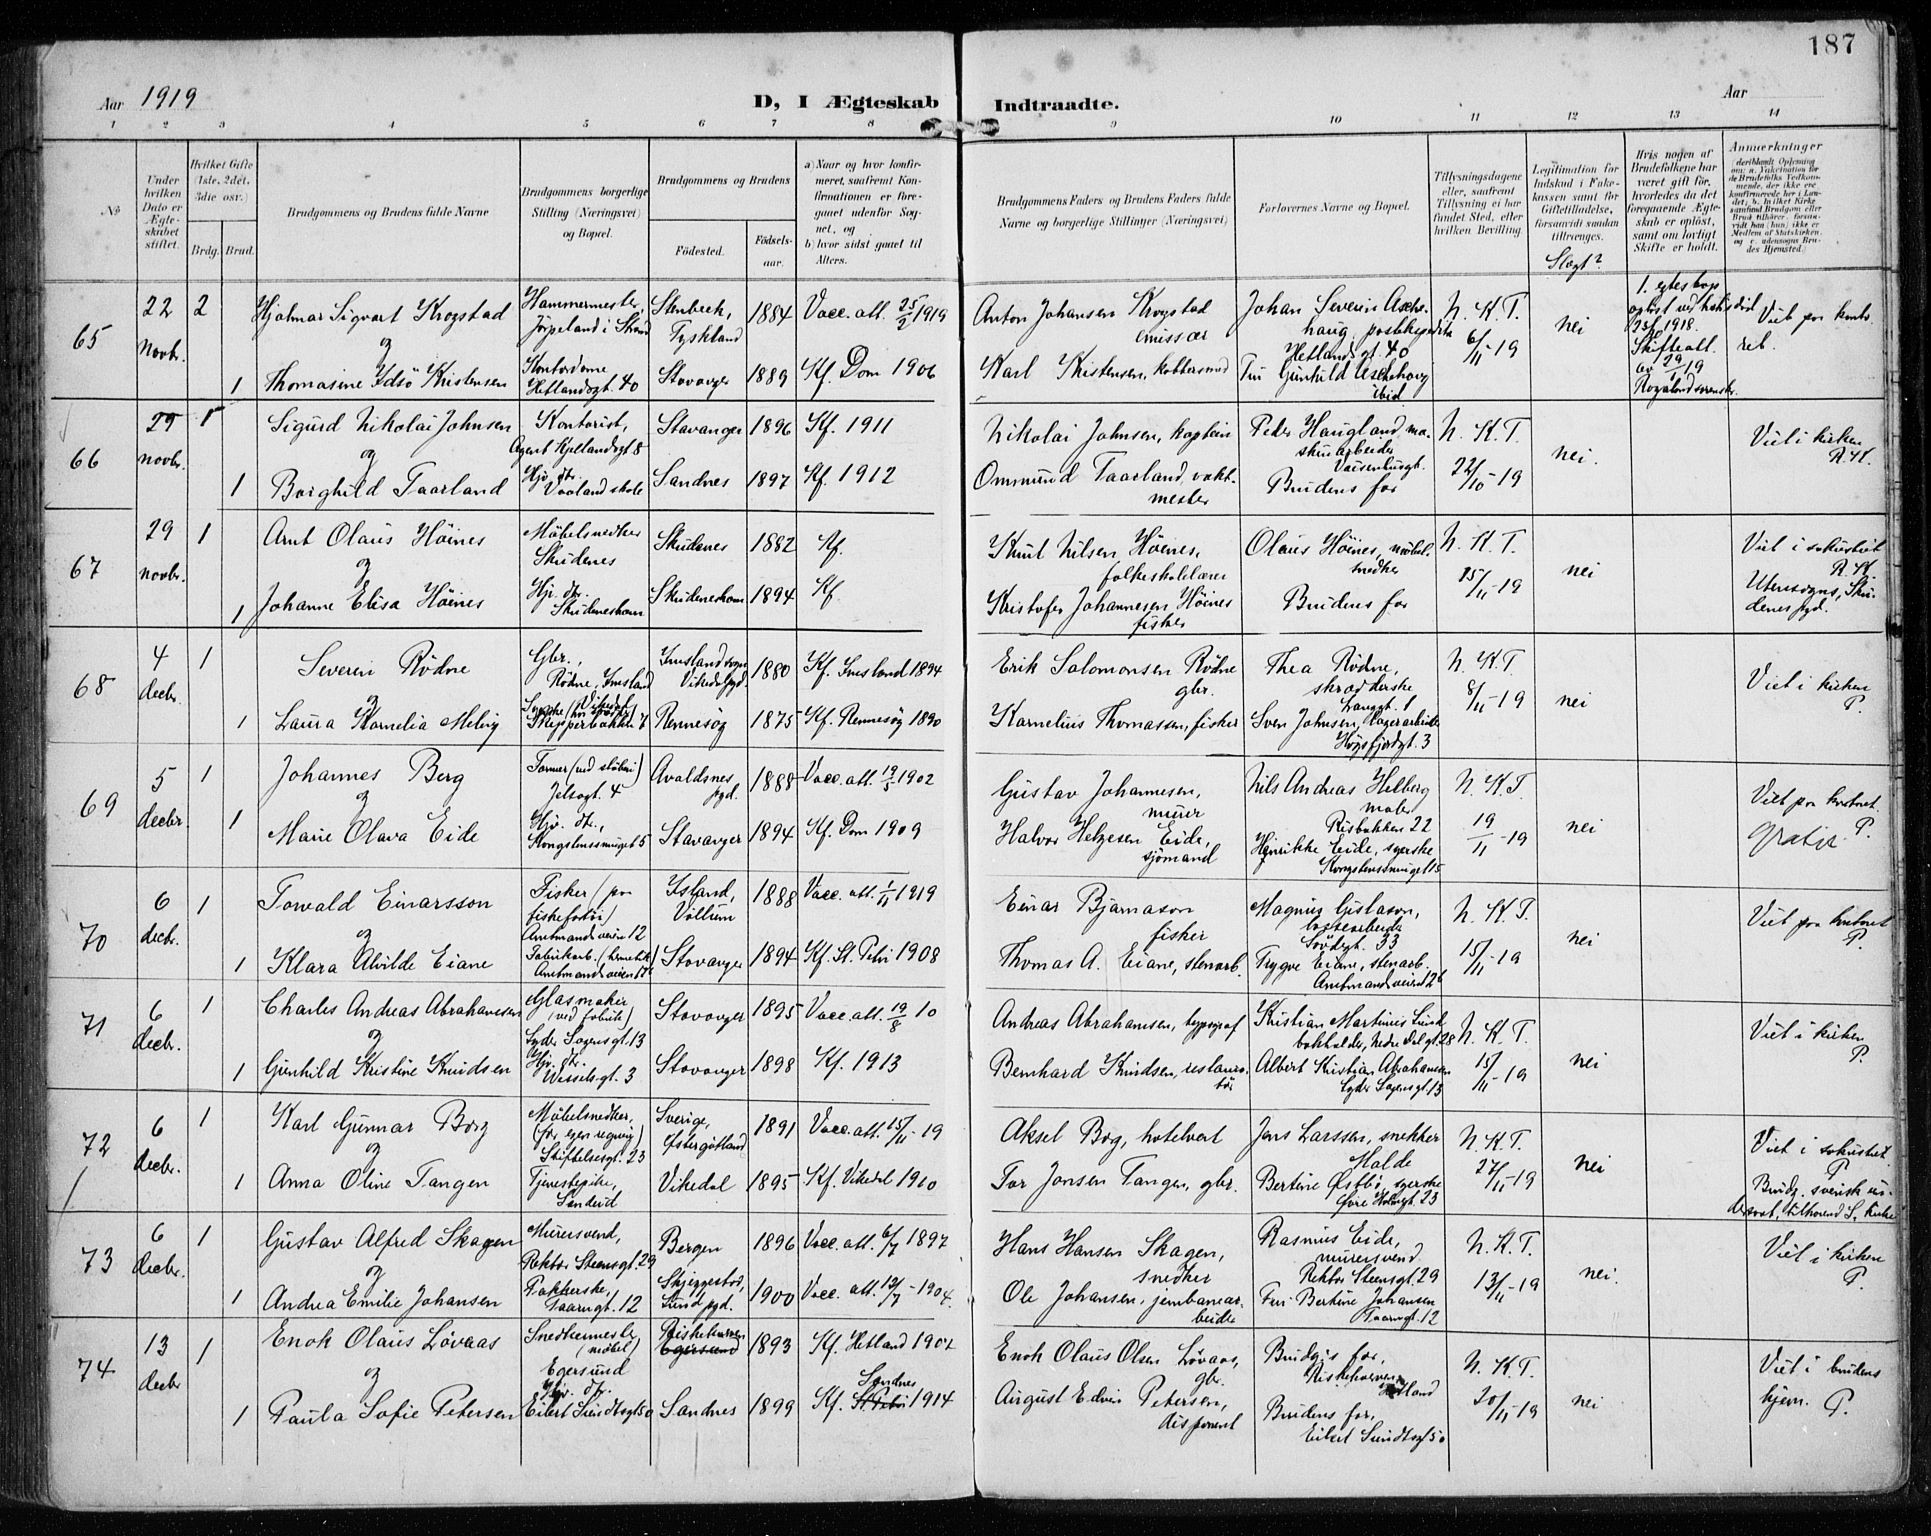 187
Aar 1919
D, I Ægteskab Indtraadte.
Aar
1 2 3 4 5 6 7 8 9 10 11 12 13 14
№
Under hvilken Dato er Ægteskabet stiftet.
Hvilket Gifte (1ste, 2det, 3die osv.)
Brdg. Brud.
Brudgommens og Brudens fulde Navne
Brudgommens borgerlige Stilling (Næringsvei) og Bopæl.
Brudgommens og Brudens
Fødested. Fødselsaar.
a) Naar og hvor konfirmeret, saafremt Konfirmationen er foregaaet udenfor Sognet, og
b) hvor sidst gaaet til Alters.
Brudgommens Faders og Brudens Faders fulde Navne og borgerlige Stillinger (Næringsvei)
Forlovernes Navne og Bopæl.
Tillysningsdagene eller, saafremt Tillysning ei har fundet Sted, efter hvilken Bevilling.
Legitimation for Indskud i Enkekassen samt for Giftetilladelse, forsaavidt saadan tiltrænges.
Slegt?
Hvis nogen af Brudefolkene har været gift før, hvorledes da det foregaaende Ægteskab er opløst, samt om lovligt Skifte er holdt.
Anmerkninger
65
22 novbr.
2
Hjalmar Sigvart Krogstad
og
1 Thomasine Idsö Kristensen
Hammermester Jörpeland i Strand
Kontordame Hetlandsgt. 40
Tyskland 1884 Vacc. att. 25/2 1919
Stavanger 1889 Kf. Dom 1906
Anton Johansen Krogstad emissær
Karl Kristensen, kobbersmed
Johan Severin Aschehaug, postekspeditör Hetlandsgt. 40
Fru Gunhild Aschehaug ibid
N. K. T. 6/11-19
nei
1. egteskap oplöst ved 1918. Skifteatt. av 29/1 19
Viet paa kontoret.
66
29 novbr.
1
Sigurd Nikolai Johnsen
og
1 Borghild Taarland
Kontorist, Agent Kjellandsgt 8
Hjv. dtr. Vaaland skole
Stavanger 1896 Kf. 1911
Sandnes 1897 Kf. 1912
Nikolai Johnsen, kaptein
Ommund Taarland, vaktmester
Peder Haugland, maskinarbeider Vaisenhusgt.
Brudens far
N. K. T. 22/10-19
nei.
Viet i kirken R. H.
67
29 novbr.
1
Arnt Olaus Höines
og
1 Johanne Elisa Höines
Möbelsnedker Skudenes
Hj. dtr. Skudeneshavn
Skudenes 1882 Kf.
Skudeneshavn 1894 Kf.
Knut Nilsen Höines, folkeskolelærer
Kristofer Johannesen Höines fisker
Olaus Höines, möbelsnedker
Brudens far
N. K. T. 15/11-19
nei
Viet i sakristiet R. H.
Utensogns, Skudenes pgd.
68
4 decbr.
1
Severin Rödne
og
1 Laura Kornelia Meling
Gbr., Rödne, Imsland Vikedal
Skipperbakken 7
Imsland sogn Vikedal pgd. 1880 Kf. Imsland 1894
Rennesöy 1875 Kf. Rennesöy 1890
Erik Salomonsen Rödne gbr.
Kornelius Thomassen, fisker
Thea Rödne, skrædderske Langgt. 1
Sven Johnsen, lagerarbeider Högsfjordgt. 3
N. K. T 8/11-19
nei
Viet i kirken P.
69
5 decbr.
1
Johannes Berg
og
1 Marie Olava Eide
Former (ved stöberi) Jelsagt. 4
Hjv. dtr., Kongstenssmuget 5
Avaldsnes pgd. 1888 Vacc. att. 19/5 1902
Stavanger 1894 Kf. Dom 1909
Gustav Johannesen, murer
Halvor Helgesen Eide, sjömand
Nils Andreas Helberg maler Risbakken 22
Henrikke Eide, syerske Kongstenssmuget 15
N. K. T. 19/11-19
nei
Viet paa kontoret. gratis. P.
70
6 decbr.
1
Torvald Einarsson
og
1 Klara Alvilde Eiane
Fisker (paa fiskeforöi) Amtmandsveien 12
Fabrikarb. (hermetik) Amtmandsveien
Island, 1888 Vacc. att. 1/11 1919
Stavanger 1894 Kf. St. Petri 1908
Einar Bjarnason fisker
Thomas A. Eiane, stenarb.
Magnus Gislason, lossearbeider Lövdgt. 33
Trygve Eiane, stenarb. Amtmandsveien 126
N. K. T. 15/11-19
nei
Viet paa kontoret P.
71
6 decbr.
1
Charles Andreas Abrahamsen
og
1 Gunhild Kristine Knudsen
Glasmaker (ved fabrik) Lyder Sagensgt. 13
Hjv. dtr. Wesselsgt. 3
Stavanger 1895 Vacc. att. 19/8 10
Stavanger 1898 Kf. 1913
Andreas Abrahamsen, typograf
Bernhard Knudsen, restauratör
Kristian Martinius Lunde bokholder, Nedre Dalgt. 28
Albert Kristian Abrahamsen Lyder Sagensgt. 13
N. K. T. 15/11-19
nei
Viet i kirken P.
72
6 decbr.
1
Karl Gunnar Borg
og
1 Anna Oline Tangen
Möbelsnedker, (for egen regning) Stiftelsesgt. 23
Tjenestepike, Sandeid
Sverige, Östergötland 1891 Vacc. att. 15/11-19
Vikedal 1895 Kf. Vikedal 1910
Aksel Borg, hotelvert
Tor Jonsen Tangen, gbr.
Jens Larssen, snekker Malde
Bertine Östbö, syerske Övre Holmegt. 23
N. K. T. 27/11-19
nei
Viet i sakristiet. P
Brudg. svensk undersaat, tilhörende S. kirke
73
6 decbr.
1
Gustav Alfred Skagen
og
1 Andrea Emilie Johansen
Murersvend, Rektor Steensgt. 29
Pakkerske, Taarngt. 12
Bergen 1896 Vacc. att. 6/7 1897
Skjeggestad, Sund pgd. 1900 Vacc. att. 13/7-1904.
Hans Hansen Skagen, snedker
Ole Johansen, jernbanearbeider
Rasmus Eide, murersvend Rektor Steensgt. 29
Fru Bertine Johansen Taarngt. 12
N. K. T. 13/11-19
nei.
Viet i kirken P.
74
13 decbr
1
Enok Olaus Lövaas
og
1 Paula Sofie Petersen
Snedkermester (möbel) Egersund
Hjv. dtr. Eilert Sundtsgt 50
Riskekverven Egersund 1893 Kf. Hetland 1907
Sandnes 1899 Kf. St. Petri Sandnes 1914
Enok Olaus Olsen Lövaas, gbr.
August Edvin Petersen, disponent
Brudg's far, Riskekverven Hetland
Brudens far, Eilert Sundtsgt 50
N. K. T. 20/11-19
nei
Viet i brudens hjem. P.